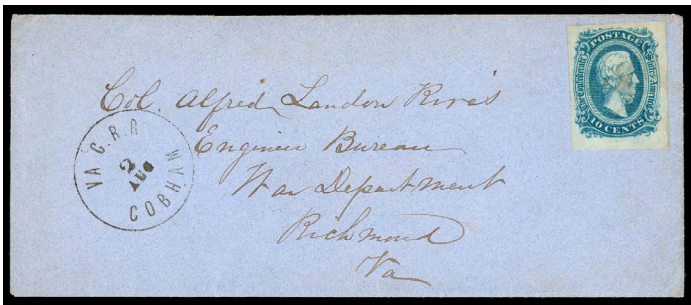 POSTAGE
The Confederate States of America
10 CENTS
Col. Alfred Landon Rives
Engineer Bureau
War Department
Richmond
Va
VA C. R. R
2
AUG
COBHAM